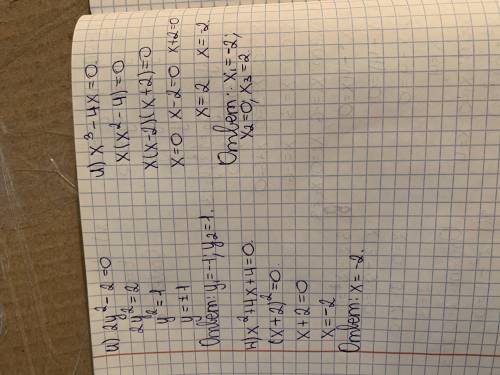 и) 2y² - 2 = 0
2y² = 2
y² = 1
y = ±1
Ответ: y = -1; y₂ = 1.
н) x² + 4x + 4 = 0.
(x + 2)² = 0.
x + 2 = 0
x = -2
Ответ: x = -2.
и) x³ - 4x = 0
x(x² - 4) = 0
x(x - 2)(x + 2) = 0
x = 0 x - 2 = 0 x + 2 = 0
x = 2 x = -2
Ответ: x₁ = -2;
x₂ = 0, x₃ = 2